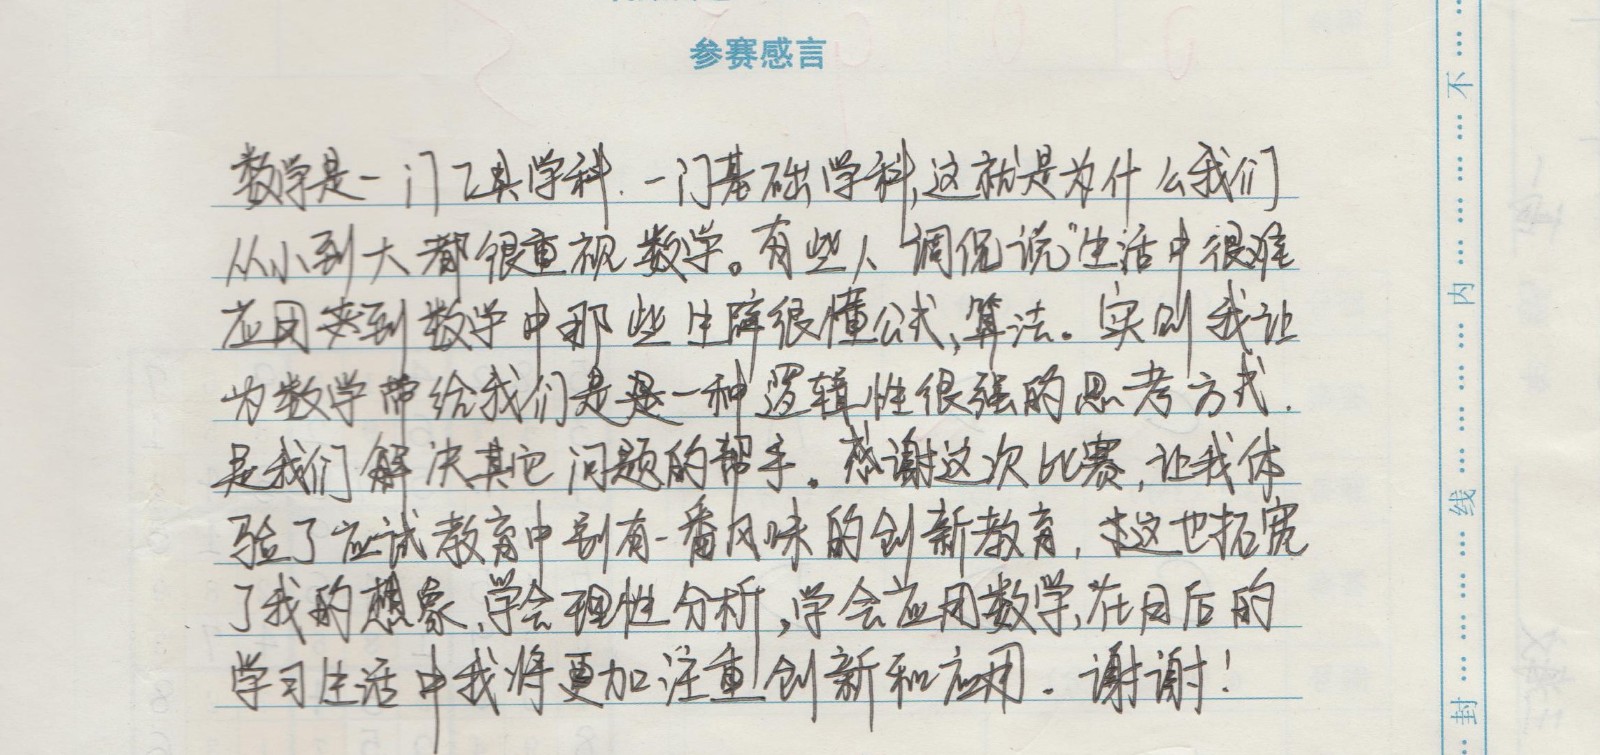 参赛感言
数学是一门工具学科.一门基础学科,这就是为什么我们
从小到大都很重视数学。有些人调侃说"生活中很难
应用来到数学中那些生障很懂公式,算法。实则我认
为数学带给我们是是一种逻辑性很强的思考方式.
是我们解决其它问题的帮手。感谢这次比赛,让我体
验了应试教育中别有一番风味的创新教育,这也拓宽
了我的想象,学会理性分析,学会应用数学,在日后的
学习生活中我将更加注重创新和应用.谢谢!
封 线 内 不